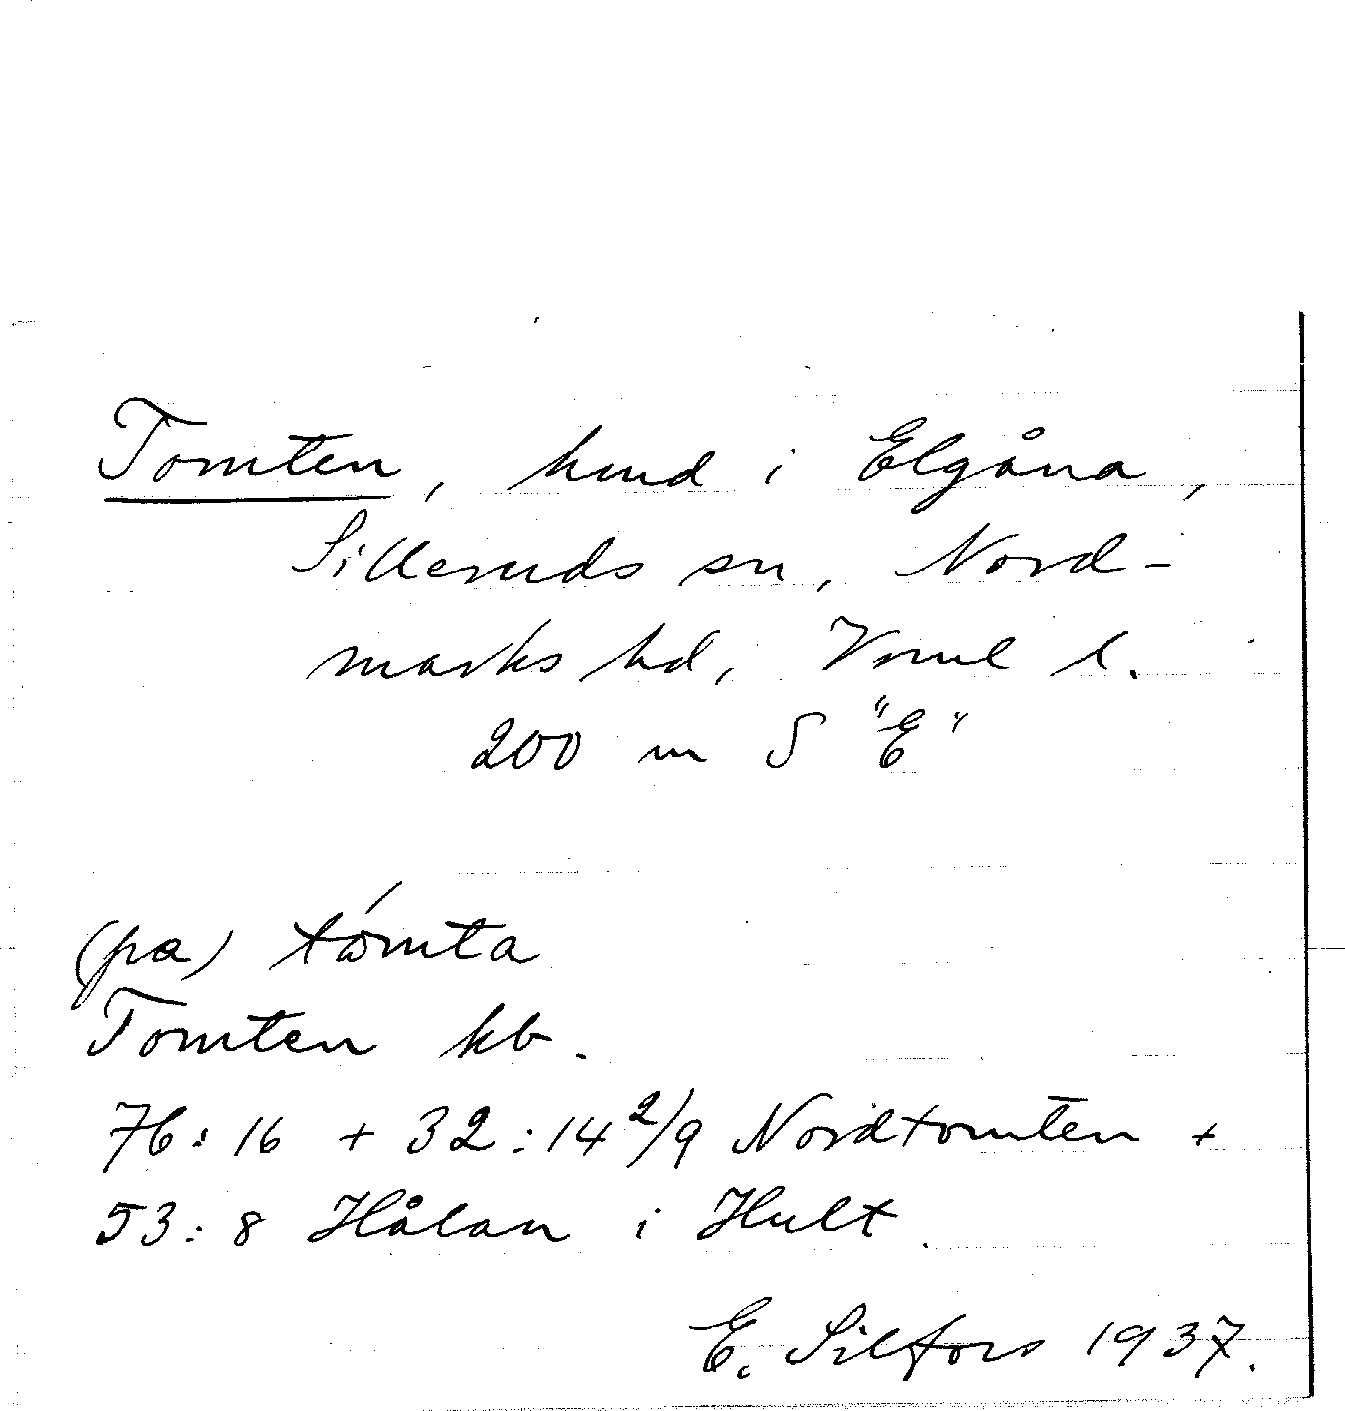 Tomten, hmd i Elgåna,
Silleruds sn, Nord-
marks hd, Vrml l.
200 m S "E"
(pa) tómta
Tomten kb.
76:16 + 32:14 2/9 Nordtomten +
53:8 Hålan i Hult.
E. Silfors 1937.